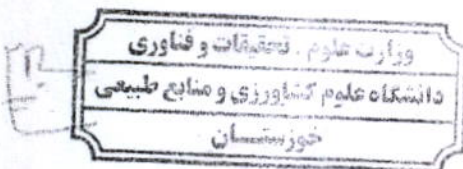 وزارت علوم . تحقیقات و فناوری
دانشگاه علوم کشاورزی و منابع طبیعی
خوزستان